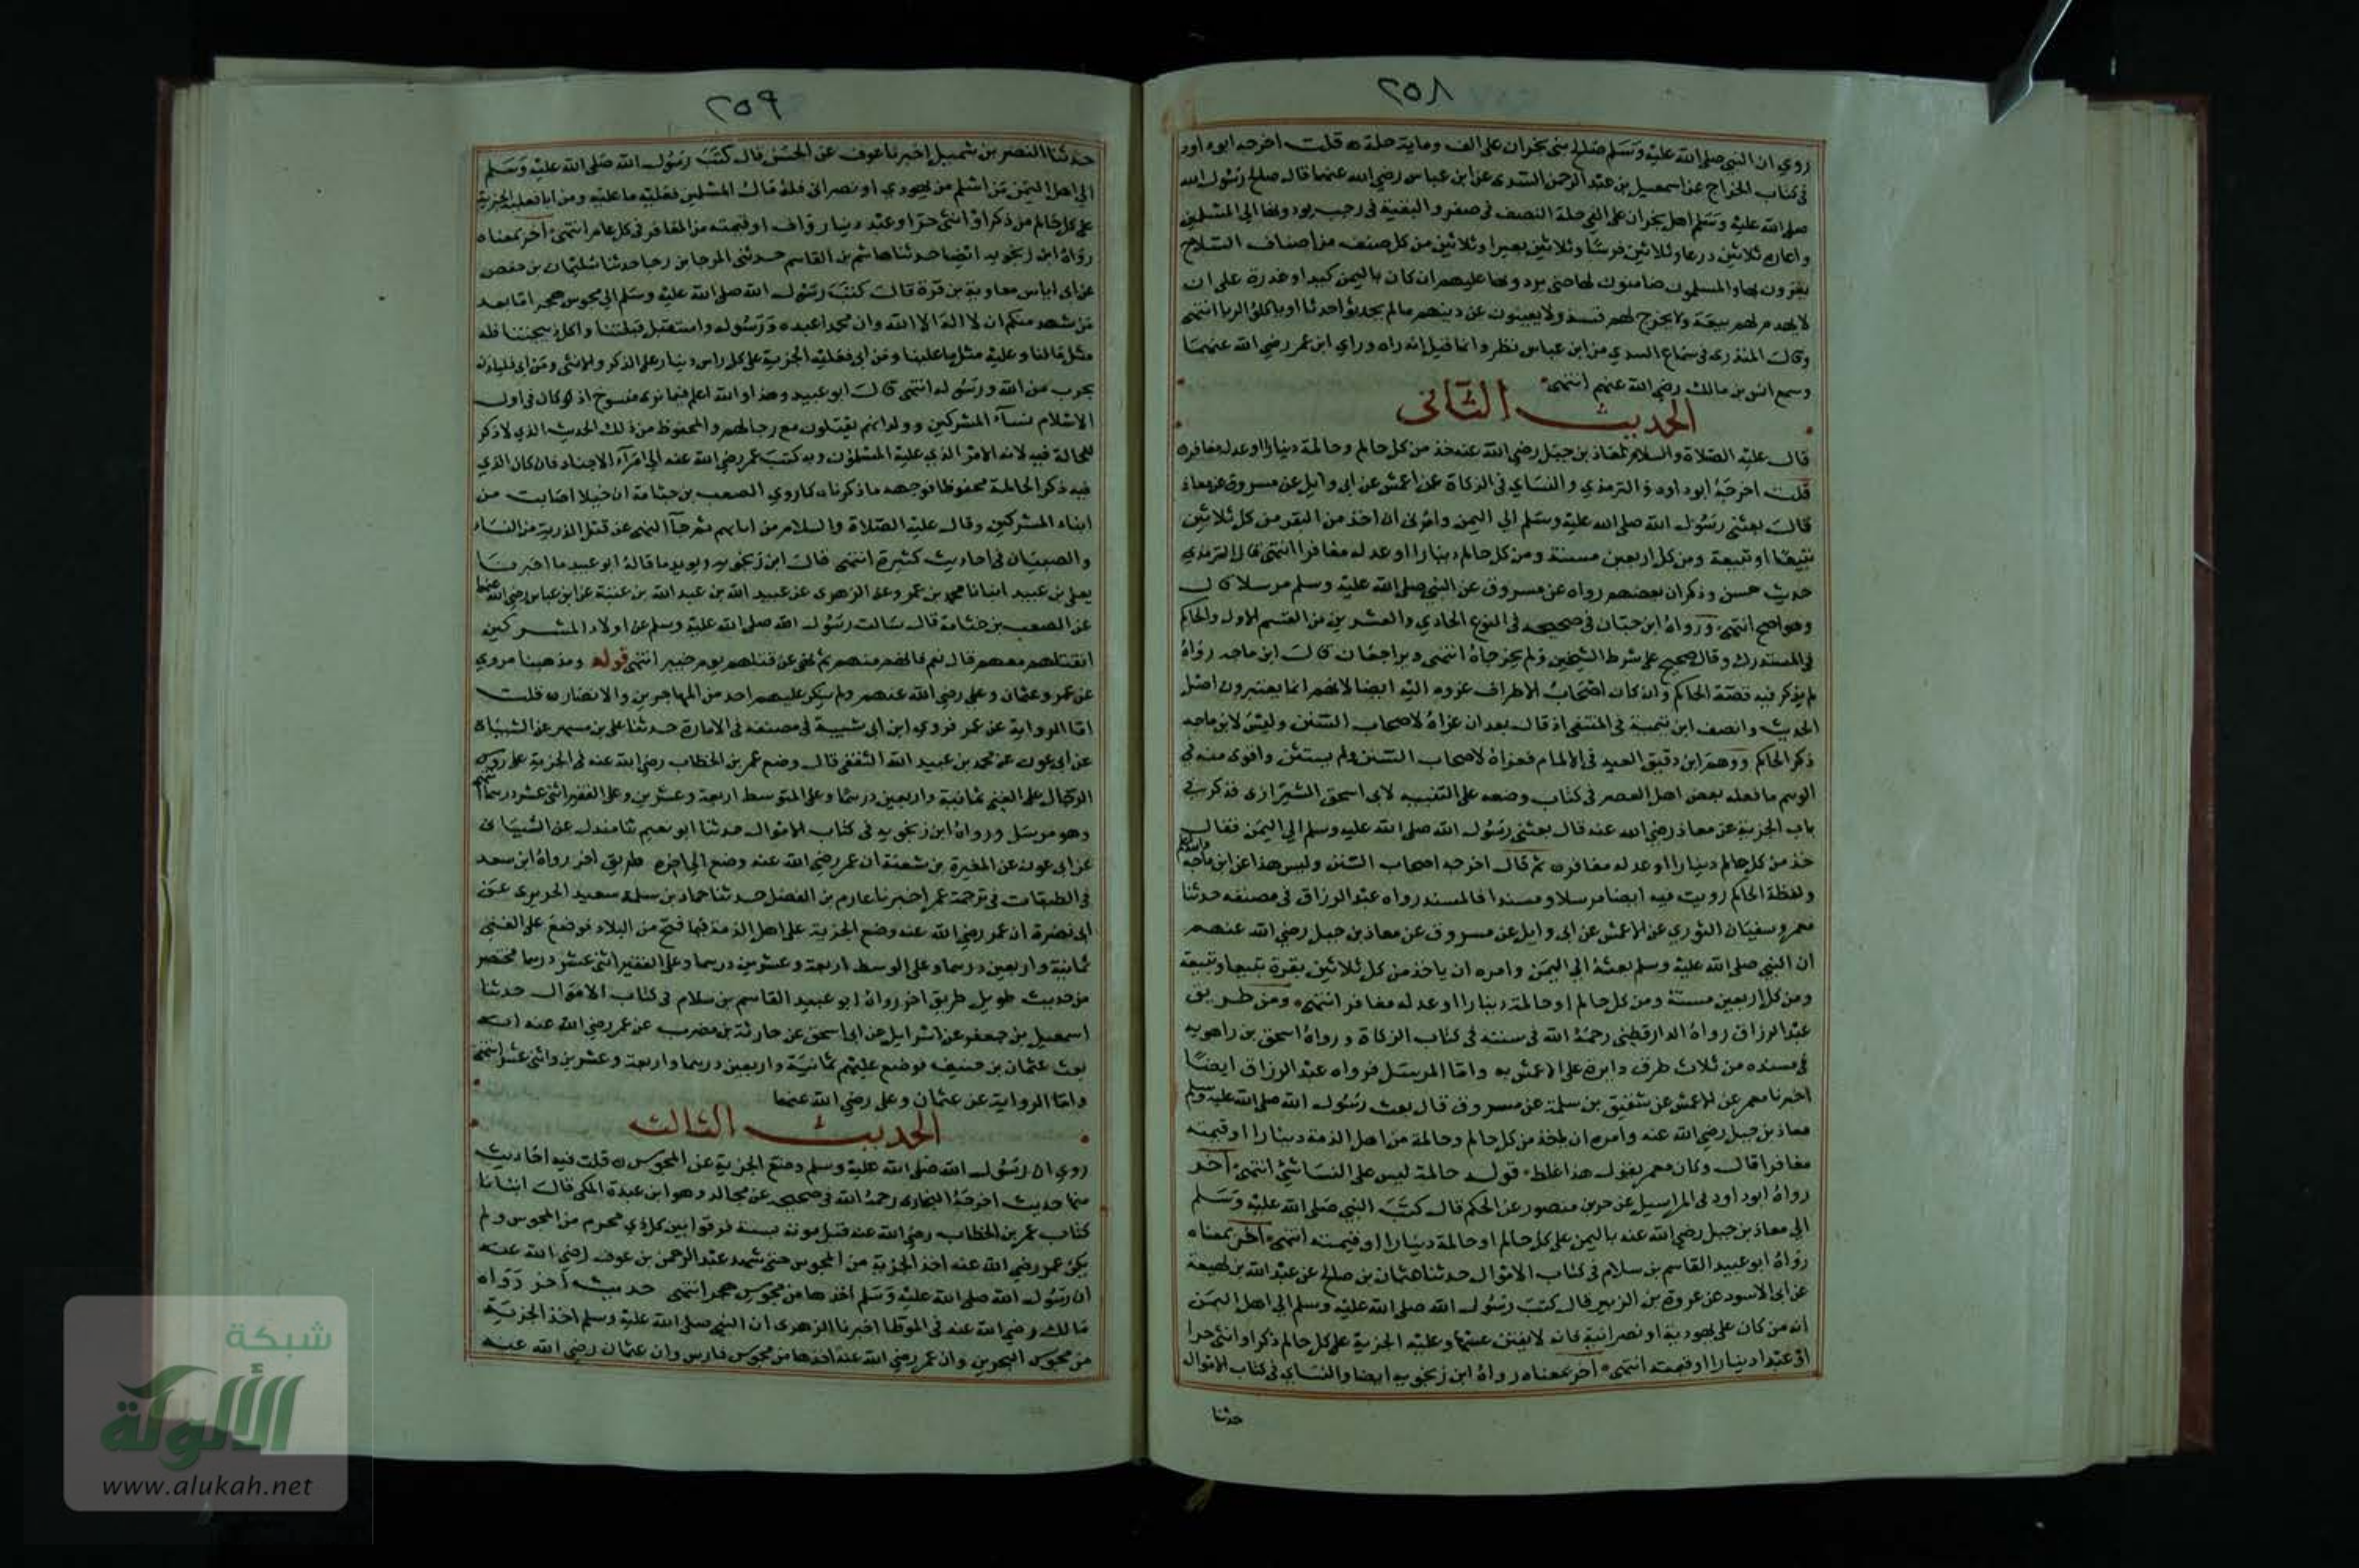 ٢٥٨
روي ان النبي صلى الله عليه وسلم صالح بنى نجران على الف ومايتى حلة ه قلت اخرجه ابوداود
فى كتاب الخراج عن اسمعيل بن عبد الرحمن السدى عن ابن عباس رضي الله عنهما قال صالح رسول الله
صلى الله عليه وسلم اهل نجران على الفي حلة النصف فى صفر والبقية فى رجب يودونها الى المسلمين
واعارة ثلاثين درعا وثلاثين فرسًا وثلاثين بعيرا وثلاثين من كل صنف من اصناف السلاح
يغزون بها والمسلمون ضامنون لها حتى يردونها عليهم ان كان باليمن كيد او غدرة على ان
لا يهدم لهم بيعة ولا يخرج لهم قس ولا يفتنون عن دينهم مالم يحدثوا حدثا او ياكلوا الربا انتهى
وقال المنذرى فى سماع السدي من ابن عباس نظر وانما قيل إنه راه وراي ابن عمر رضي الله عنهما
وسمع انس بن مالك رضي الله عنهم انتهى
الحديث الثانى
قال عليه الصلاة والسلام لمعاذ بن جبل رضي الله عنه خذ من كل حالم وحالمة دينارا او عدله معافره
قلت اخرجه ابوداود والترمذي والنساي فى الزكاة عن اعمش عن ابى وايل عن مسروق عن معاذ
قال بعثنى رسول الله صلى الله عليه وسلم الي اليمن وامرنى ان اخذ من البقر من كل ثلاثين
تبيعا او تبيعة ومن كل اربعين مسنة ومن كل حالم دينارا او عدله معافرا انتهى قال الترمذي
حديث حسن وذكر ان بعضهم رواه عن مسروق عن النبي صلى الله عليه وسلم مرسلا قال
وهو اصح انتهى ورواه ابن حبان فى صحيحه فى النوع الحادي والعشرين من القسم الاول والحاكم
فى المستدرك وقال صحيح على شرط الشيخين ولم يخرجاه انتهى ويراجعان قال ابن ماجه رواه
لم يذكر فيه قصة الحالم وان كان اصحاب الاطراف عزوه اليه ايضا لانهم انما يعتبرون اصل
الحديث وانصف ابن تيمية فى المنتقى اذ قال بعد ان عزاه لاصحاب السنن وليس لابن ماجه
ذكر الحالم ووهم ابن دقيق العيد فى الالمام فعزاه لاصحاب السنن ولم يستثن واقوى منه في
الوهم ما فعله بعض اهل العصر فى كتاب وضعه على التنبيه لابى اسحق الشيرازى فذكر فى
باب الجزية عن معاذ رضي الله عنه قال بعثنى رسول الله صلى الله عليه وسلم الي اليمن فقال
خذ من كل حالم دينارا او عدله معافره ثم قال اخرجه اصحاب السنن وليس هذا عن ابن ماجه
ولفظة الحالم رويت فيه ايضا مرسلا ومسندا فالمسند رواه عبد الرزاق فى مصنفه حدثنا
معمر وسفيان الثوري عن الاعمش عن ابى وايل عن مسروق عن معاذ بن جبل رضي الله عنهم
ان النبي صلى الله عليه وسلم بعثه الي اليمن وامره ان ياخذ من كل ثلاثين بقرة تبيعا او تبيعة
ومن كل اربعين مسنة ومن كل حالم او حالمة دينارا او عدله معافر انتهى ومن طريق
عبد الرزاق رواه الدارقطنى رحمه الله فى سننه فى كتاب الزكاة ورواه اسحق بن راهويه
فى مسنده من ثلاث طرق دايرة على الاعمش به واما المرسل فرواه عبد الرزاق ايضًا
اخبرنا معمر عن الاعمش عن شقيق بن سلمة عن مسروق قال بعث رسول الله صلى الله عليه وسلم
معاذ بن جبل رضي الله عنه وامره ان ياخذ من كل حالم وحالمة من اهل الذمة دينارا او قيمته
معافرا قال وكان معمر يقول هذا غلط قوله حالمة ليس على النسا شئ انتهى آخر
رواه ابوداود فى المراسيل عن جرير عن منصور عن الحكم قال كتب النبي صلى الله عليه وسلم
الي معاذ بن جبل رضي الله عنه باليمن على كل حالم او حالمة دينارا او قيمته انتهى آخر بمعناه
رواه ابوعبيد القاسم بن سلام فى كتاب الاموال حدثنا عثمان بن صالح عن عبد الله بن لهيعة
عن ابى الاسود عن عروة بن الزبير قال كتب رسول الله صلى الله عليه وسلم الي اهل اليمن
انه من كان على يهودية او نصرانية فانه لايفتن عنها وعليه الجزية على كل حالم ذكرا وانثى حرا
او عبدا دينارا او قيمته انتهى آخر بمعناه رواه ابن زنجويه ايضا والنساي فى كتاب الاموال
حدثنا
٢٥٩
حدثنا النضر بن شميل اخبرنا عوف عن الحسن قال كتب رسول الله صلى الله عليه وسلم
الي اهل اليمن من اسلم من يهودي او نصرانى فله مال المسلمين فعليه ما عليه ومن ابا فعليه الجزية
على كل حالم من ذكر او انثى حر او عبد دينار واف او قيمته من المعافر فى كل عام انتهى آخر بمعناه
رواه ابن زنجويه ايضا حدثنا هاشم بن القاسم حدثنى المرجا بن رجا حدثنا سليمان بن حفص
عن ابى اياس معاوية بن قرة قال كتب رسول الله صلى الله عليه وسلم الي مجوس هجر اما بعد
من شهد منكم ان لا اله الا الله وان محمدا عبده ورسوله واستقبل قبلتنا واكل ذبيحتنا فله
مثل مالنا وعليه مثل ما علينا ومن ابى فعليه الجزية على كل راس دينار على الذكر والانثى ومن ابى فلياذن
بحرب من الله ورسوله انتهى قال ابوعبيد وهذا والله اعلم فيما نرى منسوخ اذ كان فى اول
الاسلام نساء المشركين وولدانهم يقتلون مع رجالهم والمحفوظ من ذلك الحديث الذي لا ذكر
للحالمة فيه لانه الامر الذي عليه المسلمون وبه كتب عمر رضي الله عنه الي امراء الاجناد فان كان الذي
فيه ذكر الحالمة محفوظا فوجهه ما ذكرناه كما روي الصعب بن جثامة ان خيلا اصابت من
ابناء المشركين وقال عليه الصلاة والسلام هم من اباهم ثم جآ النهى عن قتل الذرية من النساء
والصبيان فى احاديث كثيرة انتهى قال ابن زنجويه ويويد ما قاله ابوعبيد ما اخبرنا
يعلى بن عبيد انبانا محمد بن عمرو عن الزهرى عن عبيد الله بن عبد الله بن عتبة عن ابن عباس رضي الله عنهما
عن الصعب بن جثامة قال سالت رسول الله صلى الله عليه وسلم عن اولاد المشركين
انقتلهم معهم قال نعم فانهم منهم ثم نهى عن قتلهم يوم خيبر انتهى قوله ومذهبنا مروي
عن عمر وعثمان وعلي رضي الله عنهم ولم ينكر عليهم احد من المهاجرين والانصار ه قلت
اما الرواية عن عمر فروي ابن ابى شيبة فى مصنفه فى الامارة حدثنا على بن مسهر عن الشيبانى
عن ابى عون محمد بن عبيد الله الثقفى قال وضع عمر بن الخطاب رضي الله عنه فى الجزية على روس
الرجال على الغنى ثمانية واربعين درهما وعلى المتوسط اربعة وعشرين وعلى الفقير اثنى عشر درهما انتهى
وهو مرسل ورواه ابن زنجويه فى كتاب الاموال حدثنا ابونعيم ثنا مندل عن الشيبانى
عن ابى عون عن المغيرة بن شعبة ان عمر رضي الله عنه وضع الي اخره طريق اخر رواه ابن سعد
فى الطبقات فى ترجمة عمر اخبرنا عارم بن الفضل حدثنا حماد بن سلمة سعيد الجريرى عن
ابى نضرة ان عمر رضي الله عنه وضع الجزية على اهل الذمة فيما فتح من البلاد فوضع على الغنى
ثمانية واربعين درهما وعلى الوسط اربعة وعشرين درهما وعلى الفقير اثنى عشر درهما مختصر
من حديث طويل طريق اخر رواه ابوعبيد القاسم بن سلام فى كتاب الاموال حدثنا
اسمعيل بن جعفر عن اسرايل عن ابى اسحق عن حارثة بن مضرب عن عمر رضي الله عنه انه
بعث عثمان بن حنيف فوضع عليهم ثمانية واربعين درهما واربعة وعشرين واثنى عشر انتهى
واما الرواية عن عثمان وعلى رضي الله عنهما
الحديث الثالث
روي ان رسول الله صلى الله عليه وسلم وضع الجزية عن المجوس ه قلت فيه احاديث
منها حديث اخرجه البخارى رحمه الله فى صحيحه عن مجالد وهو ابن عبدة المكى قال اتانا
كتاب عمر بن الخطاب رضي الله عنه قبل موته بسنة فرقوا بين كل ذي محرم من المجوس ولم
يكن عمر رضي الله عنه اخذ الجزية من المجوس حتى شهد عبد الرحمن بن عوف رضي الله عنه
ان رسول الله صلى الله عليه وسلم اخذها من مجوس هجر انتهى حديث آخر رواه
مالك رضي الله عنه فى الموطا اخبرنا الزهرى ان النبي صلى الله عليه وسلم اخذ الجزية
من مجوس البحرين وان عمر رضي الله عنه اخذها من مجوس فارس وان عثمان رضي الله عنه
شبكة
الألوكة
www.alukah.net